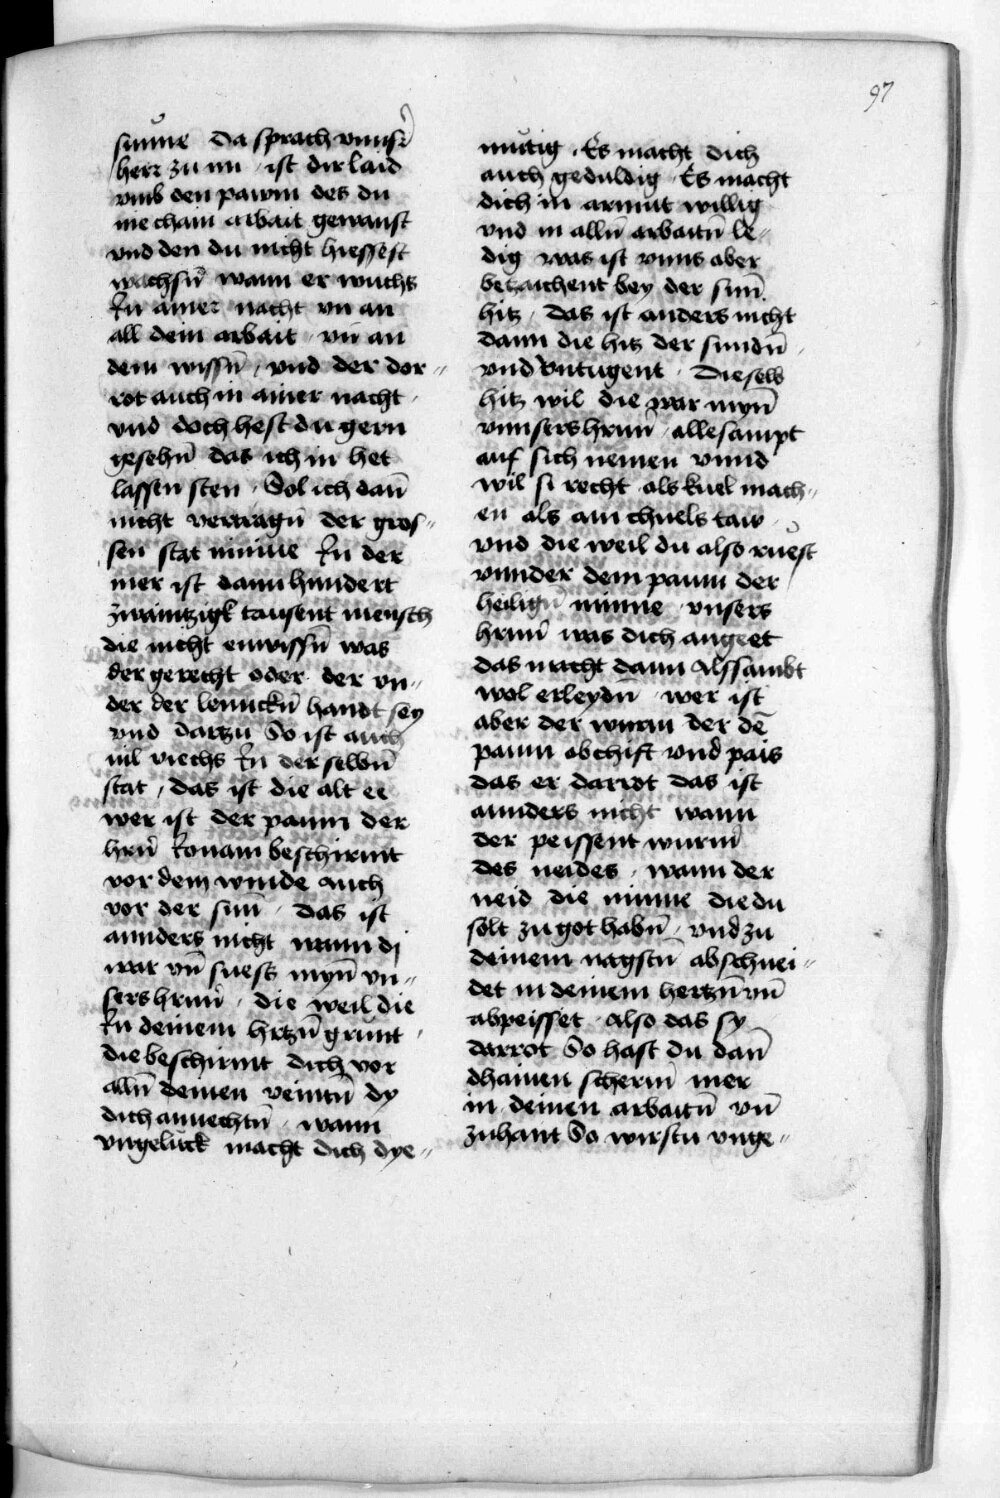 97
suͦnne Da sprach vnnsr̄
herr zu im · ist dir laid
vmb den pawm des du
nie chain arbait gewanst
vnd den du nicht hiessest
wachsn̄ wann er wuchs
Jn ainer nacht vn an
all dein arbait · vn̄ an
dem wissn̄ / vnd der dor⸗
rot auch in ainer nacht ·
vnd doch hest du gern
gesehn̄ das ich in het
lassen sten · Sol ich dan̄
nicht vertragn̄ der gros⸗
sen stat niniue Jn der
mer ist dann hundert
zwaintzigk tausent mensch
die nicht enwissn̄ was
der gerecht oder der vn⸗
der der lennckn̄ handt sey
vnd dartzu So ist auch
vil viechs Jn der selbn̄
stat / das ist die alt ee
wer ist der paum der
hrn̄ Jonam beschirmt
vor dem winde auch
vor der sun̄ · das ist
annders nicht wann di
war vn̄ suess myn̄ vn⸗
sers hrnn̄ · die weil die
Jn deinem hrtzn̄ grunt ·
die beschirmt dich vor
alln̄ deinen veintn̄ dy
dich anuechtn̄ · wann
vngelück macht dich dye⸗
muͤtig · Es macht dich
auch geduldig · Es macht
dich in armut willig
vnd in alln̄ arbaitn̄ le⸗
dig was ist vnns aber
betzaichent bey der sun̄
hitz · das ist anders nicht
dann die hitz der sundn̄ ·
vnd vntugent · Dieselb
hitz wil die war myn̄
vnnsers hrnn̄ · allesampt
auf sich nemen vnnd
wil si recht als kuel mach⸗
en als ain chuels taw ·
vnd die weil du also ruͦest
vnnder dem paum der
heilign̄ minne · vnsers
hrnn̄ was dich angeet
das macht dann alssambt
wol erleydn̄ · wer ist
aber der wurm der dē
paum abchift vnd pais
das er darrot das ist
annders nicht wann
der peissent wurm̄
des neides · wann der
neid die minne die du
solt zu got habn̄ · vnd zu
deinem nagstn̄ abschnei⸗
det in deinem hertzn̄ vn̄
abpeisset · also das sy
darrot So hast du dan̄
dhainen scherm̄ mer
in deinen arbaitn̄ vn̄
zuhant So wirstu vnge⸗